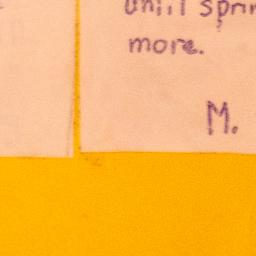 until spri
more.
M.